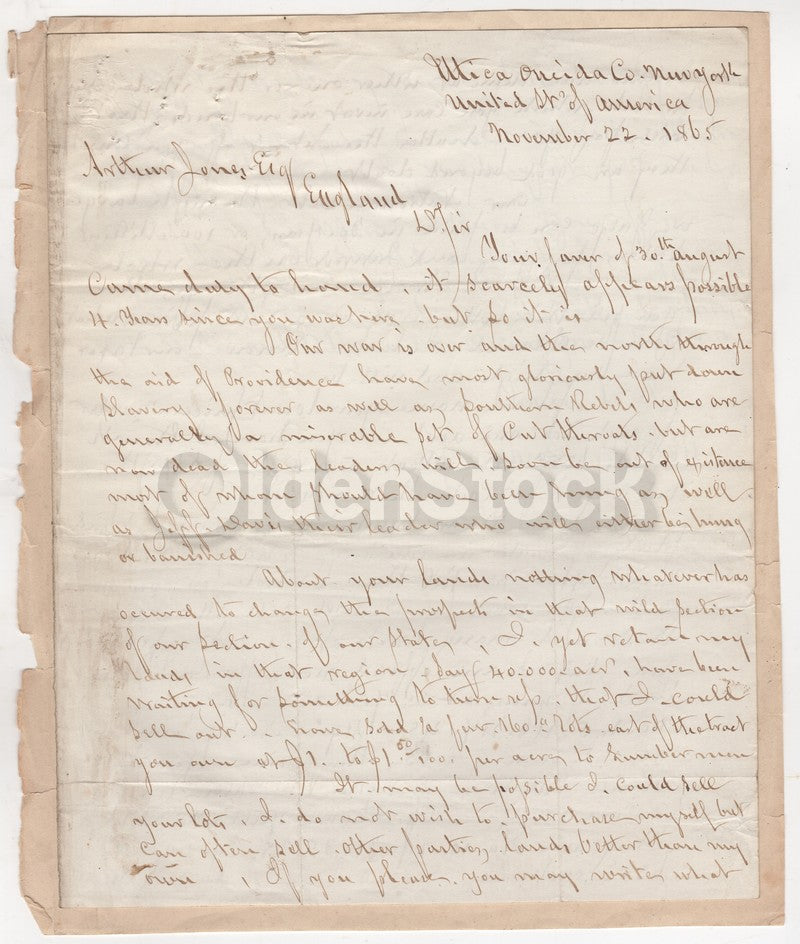 Utica Oneida Co. New York
United Sts of America
November 22. 1865
Arthur Jones Esq
England
Dr Sir
Your favor of 30th August
Came duly to hand. it scarcely appears possible
4 Years since you was here. but so it is
Our war is over and the north through
the aid of Providence have most gloriously put down
Slavery forever as well as Southern Rebels who are
generally a miserable set of Cut throats. but are
now dead the leaders will soon be out of existance
most of whom should have been hung as well.
as Jeff. Davis their leader who will either be hung
or banished
OldenStock
About your lands nothing whatever has
occured to change the prospect in that wild section
of our section. of our State, I. yet retain my
lands in that region say 40.000. acr, have been
waiting for something to turn up. that I could
sell out. have sold a few. 160. a lots. east of the tract
you own at $1. to $1 50/100. per acre to Lumber men
It. may be possible I. could sell
your lots, I. do not wish to. purchase myself but
can often sell. other parties lands better than my
own, If you please. you may write what